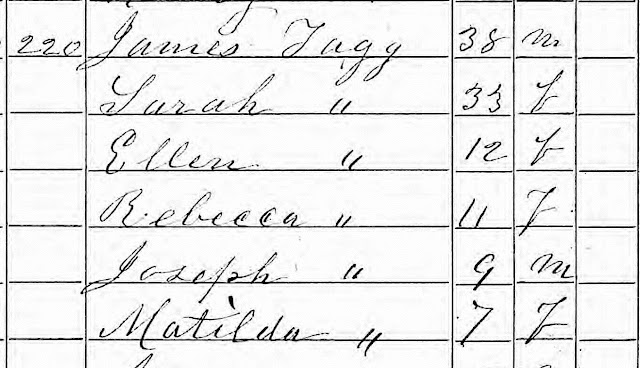 220 James Tagg 38 m
Sarah " 33 f
Ellen " 12 f
Rebecca " 11 f
Joseph " 9 m
Matilda " 7 f